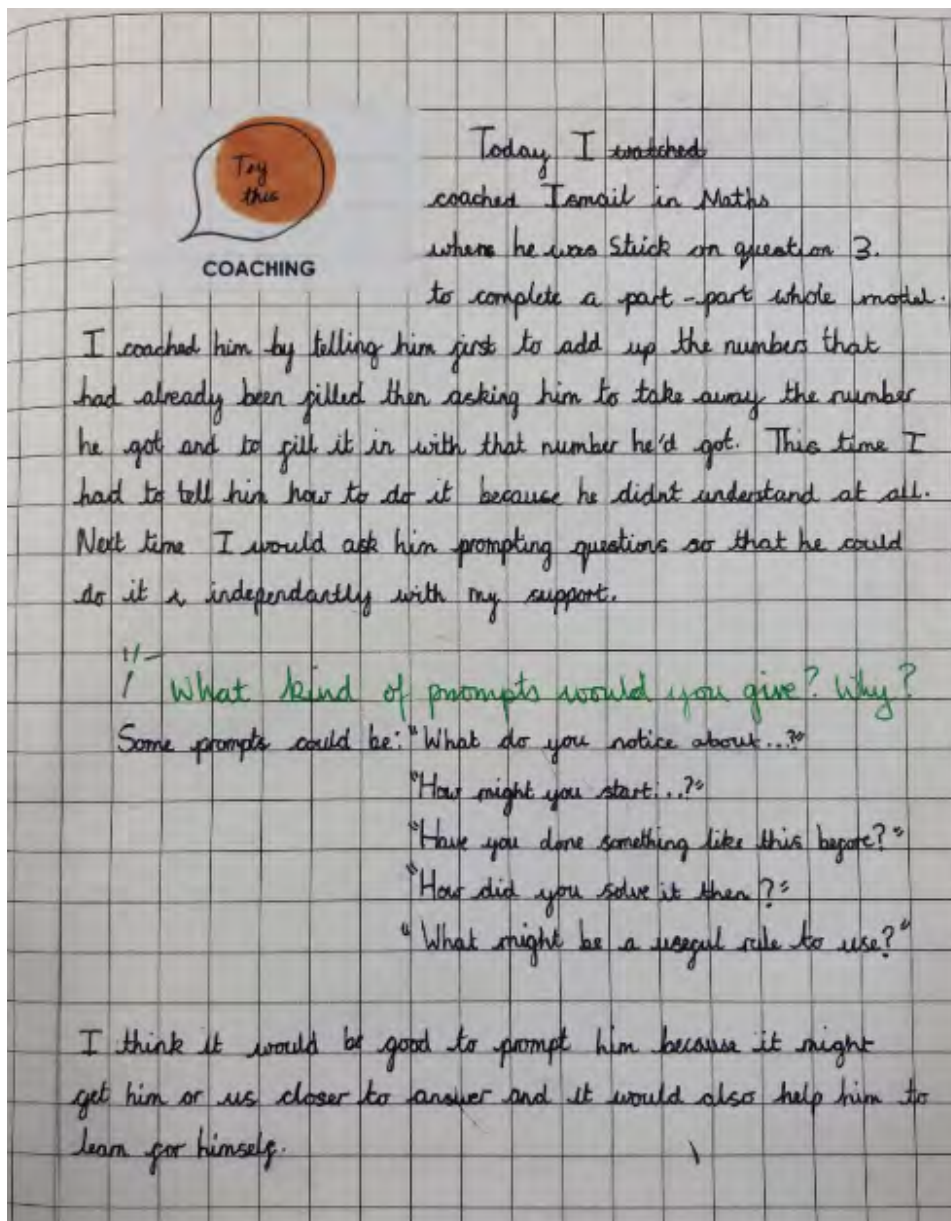 Try
this
COACHING
Today I watched
coached Ismail in Maths
where he was stuck on question 3.
to complete a part-part whole model.
I coached him by telling him first to add up the numbers that
had already been filled then asking him to take away the number
he got and to fill it in with that number he'd got. This time I
had to tell him how to do it because he didn't understand at all.
Next time I would ask him prompting questions so that he could
do it independantly with my support.
What kind of prompts would you give? Why?
Some prompts could be: "What do you notice about...?"
"How might you start...?"
"Have you done something like this before?"
"How did you solve it then?"
"What might be a useful rule to use?"
I think it would be good to prompt him because it might
get him or us closer to answer and it would also help him to
learn for himself.